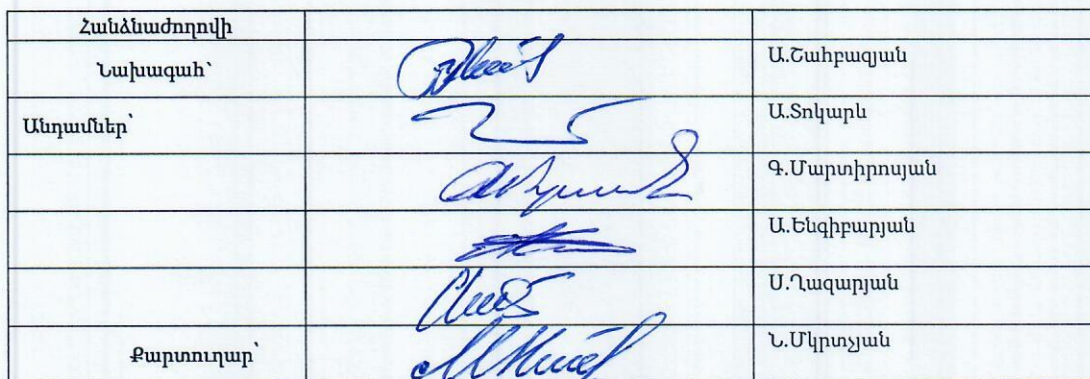 Հանձնաժողովի
Նախագահ՝ Ա.Շահբազյան
Անդամներ՝ Ա.Տոկարև
Գ.Մարտիրոսյան
Ա.Ենգիբարյան
Ս.Ղազարյան
Քարտուղար՝ Ն.Մկրտչյան